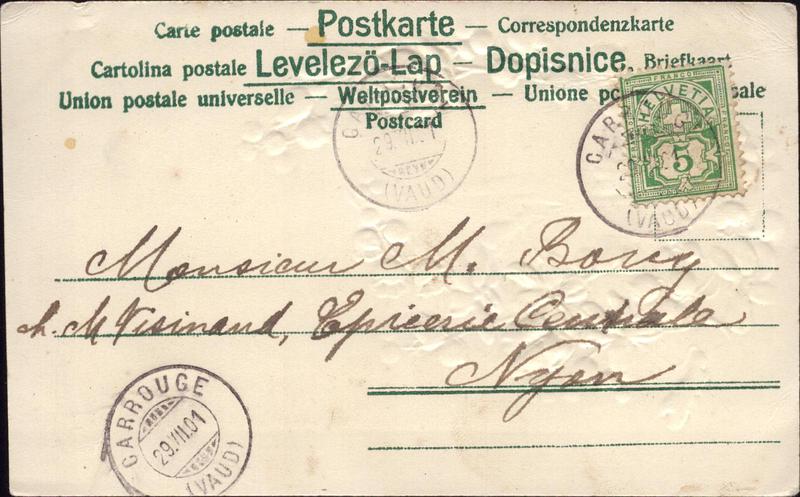 Carte postale — Postkarte — Correspondenzkarte
Cartolina postale Levelezö-Lap — Dopisnice, Briefkaart
Union postale universelle — Weltpostverein — Unione po ale
Postcard
FRANCO
HELVETIA
5
(VAUD)
29.VII.01
(VAUD)
Monsieur M. Bovy
ch. M Visinand, Epicerie Centrale
Nyon
CARROUGE
29.VII.01
(VAUD)